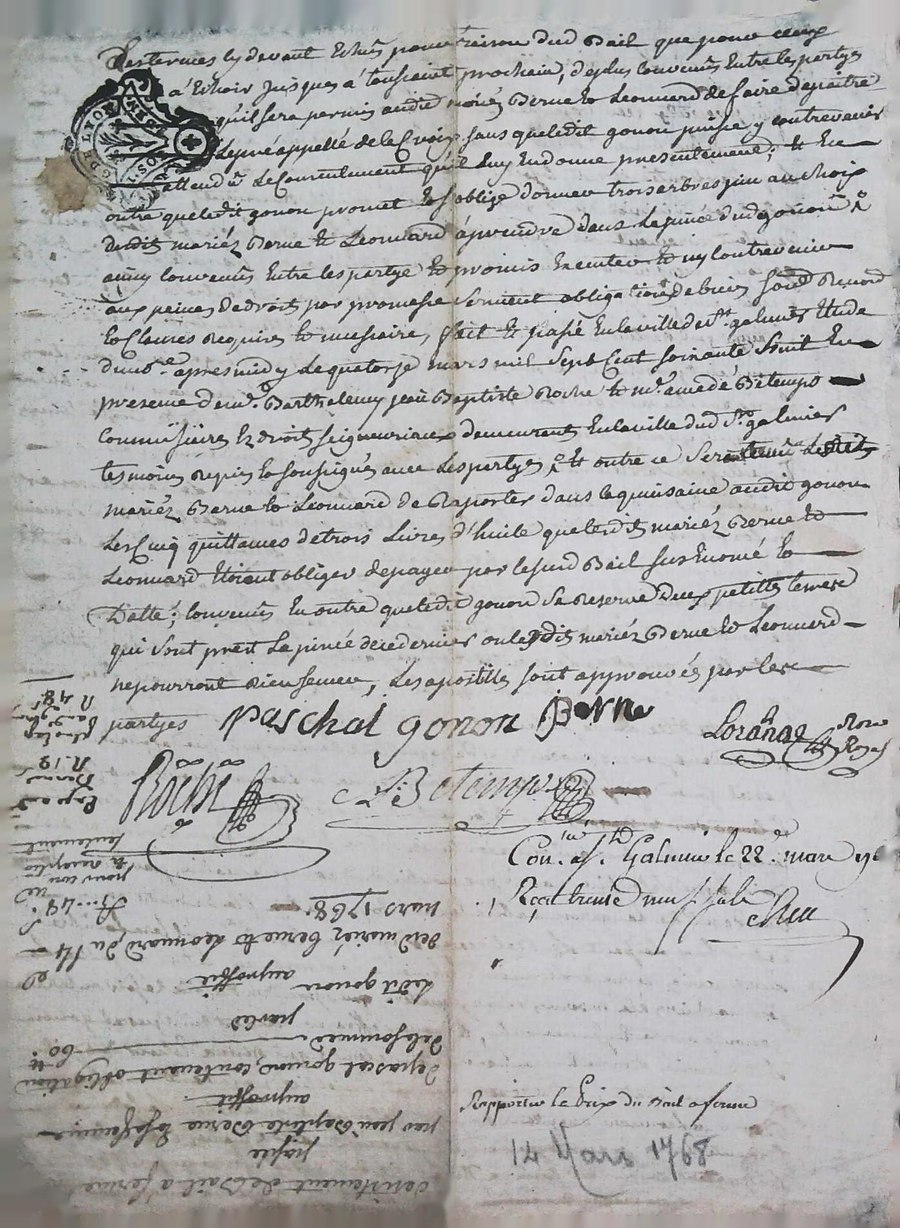 Des termes cy devant Echus pour raison dud Bail que pour ceux
a Echoir jusques a toussaint prochain, de plus convenus Entre les partyes
qu'il sera permis audit mariéz Berne et Leonnard de faire depaitre
Le pré appellé de la Croix sans que ledit gonon puisse y contrevenir
attendu Le Consentement qu'il Luy En donne presentement; Et En
outre que ledit gonon promet et s'oblige donner trois arbres pin au choix
desdits mariéz Berne et Leonnard a prendre dans Le pinée dud gonon
ainsy convenus Entre les partyes et promis Executer et ny contrevenir
aux peines de droit par promesse serment obligation de biens
et Clauses Requises et necessaire, fait et passé En la ville de St galmier Etude
du nore apres midy Le quatorze mars mil sept Cent soixante huit En
presence de mr Barthelemy jean Baptiste Roche et mr amedé Betemps
Commissaires Ez droits seigneuriaux demeurants En la ville dud St galmier
temoins Requis et soussignés avec Les partyes et outre ce seront tenus Lesdits
mariéz Berne et Leonnard de Raporter dans la quinsaine audit gonon
Les Cinq quittances de trois Livres d'huile que lesdits mariéz Berne et
Leonnard Etoient obliger de payer par le susd Bail sus Enoncé et
Datté; Convenus En outre que ledit gonon se Reserve Deux petittes terres
qui sont pres La pinée de ce dernier ou lesdits mariéz Berne et Leonnard
ne pourront Rien semer, Les apostilles sont approuvés par les
partyes paschal gonon Berne
Lorange Nore Royal
Roche Betemps
Con. a St Galmier le 22. mars
Reçu treize
Rapporter le Prix du Bail a ferme
14 Mars 1768
desistement de Bail a ferme
passée
par jean Baptiste Berne et sa femme
au proffit
de pascal gonon, contenant obligation
de la somme de 60 ₶
par led
Ledit gonon au proffit
desd mariéz Berne et Leonnard, du 14
mars 1768